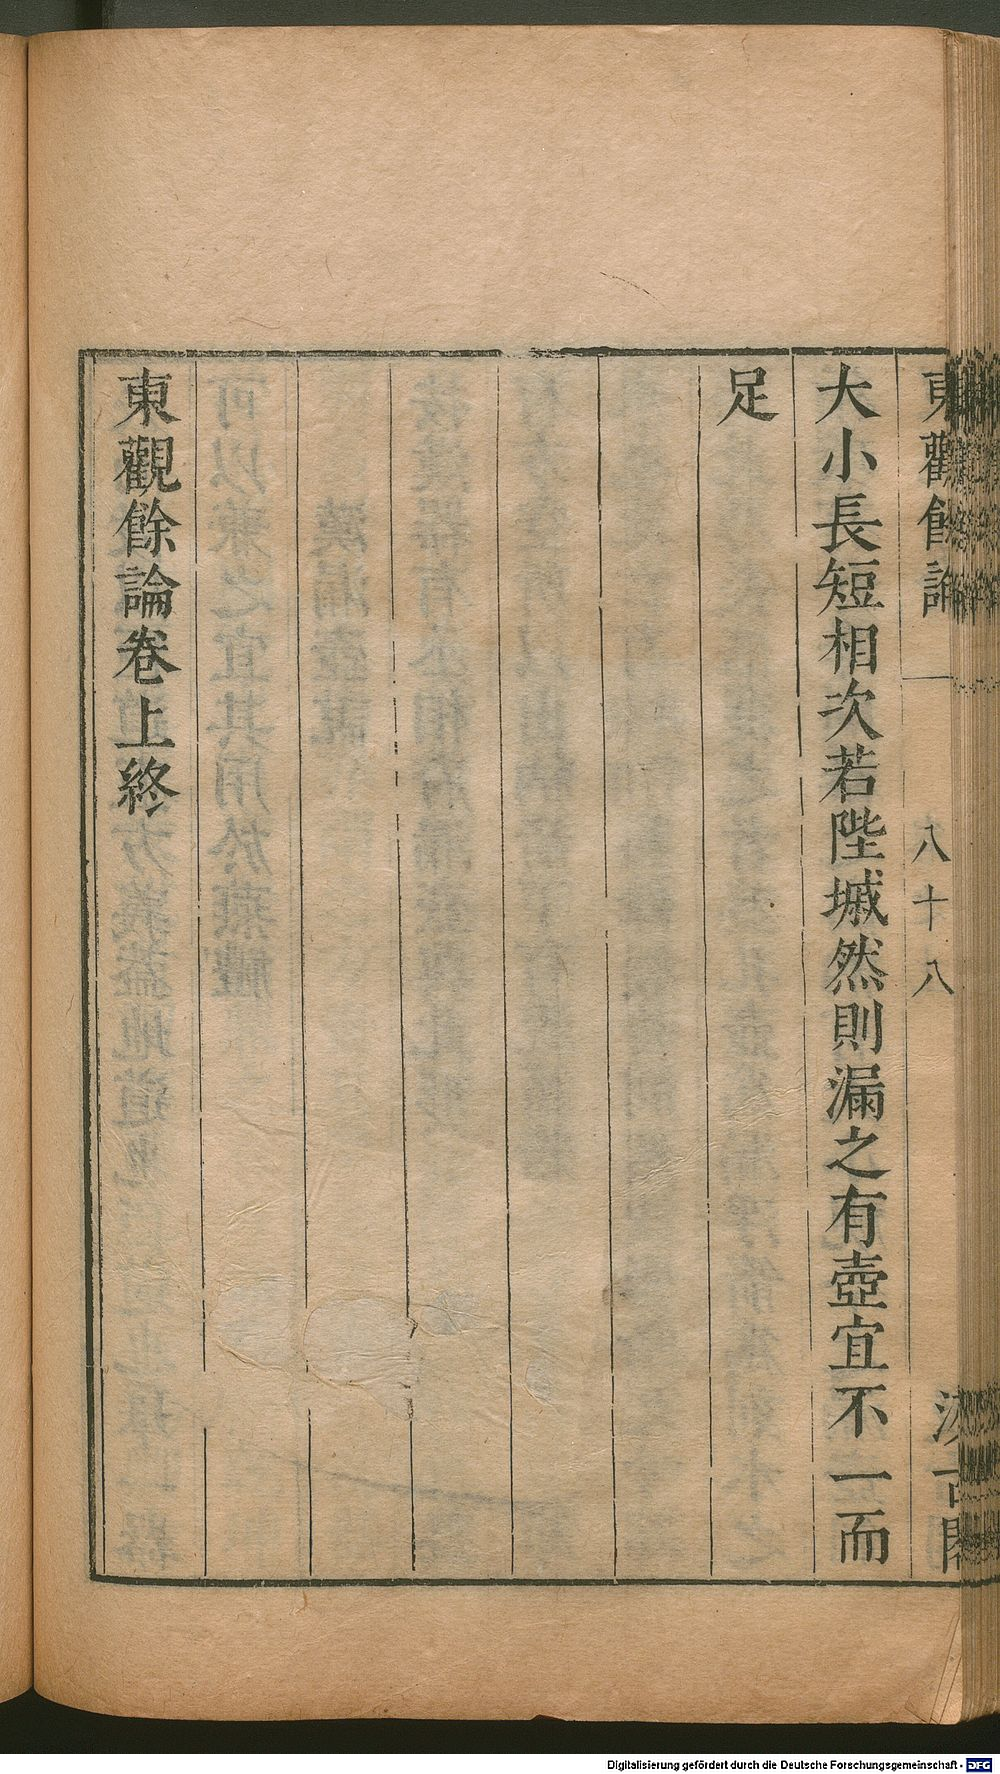 東觀餘論
八十八
汲古閣
大小長短相次若陛墄然則漏之有壺宜不一而
足
東觀餘論卷上終
Digitalisierung gefördert durch die Deutsche Forschungsgemeinschaft - DFG